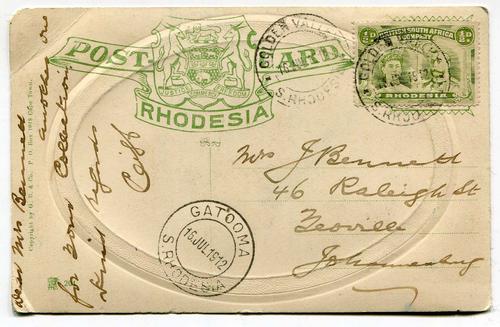 POST CARD
JUSTICE COMMERCE FREEDOM
RHODESIA
GOLDEN VALLEY
S. RHODESIA
½D BRITISH SOUTH AFRICA COMPANY ½D
GOLDEN
1912
S. RHOD
Mrs J Bennett
46 Raleigh St
Yeoville
Johannesburg
GATOOMA
16 JUL 1912
S. RHODESIA
Dear Mrs Bennett
another one
for your Collection
Kind regards
Copyright by G. B. & Co. P. O. Box 1018 Cape Town.